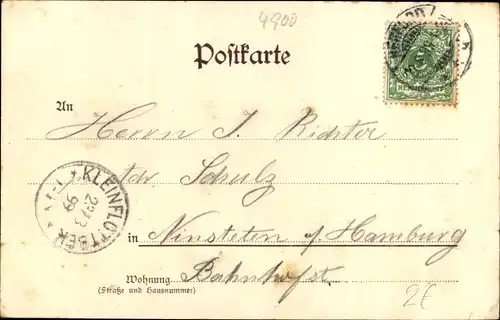 4900
Postkarte
An
Herrn J. Richter
adr. Schulz
KLEINFLOTTBEK
22/3
99
in Ninsteten a/ Hamburg
Wohnung Bahnhofst.
(Straße und Hausnummer)
2€
5